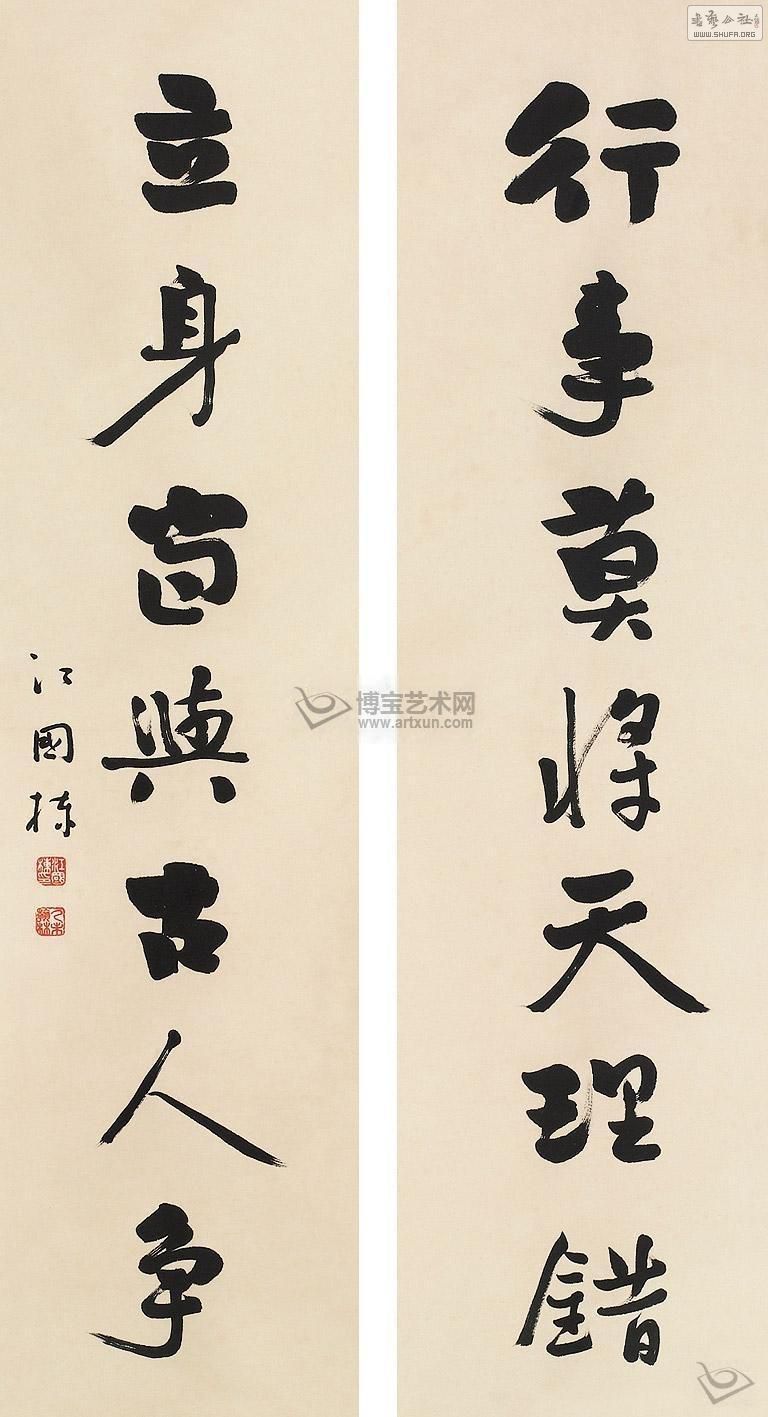 行事莫將天理錯
立身宜與古人争
江國棟
博宝艺术网
www.artxun.com
WWW.SHUFA.ORG